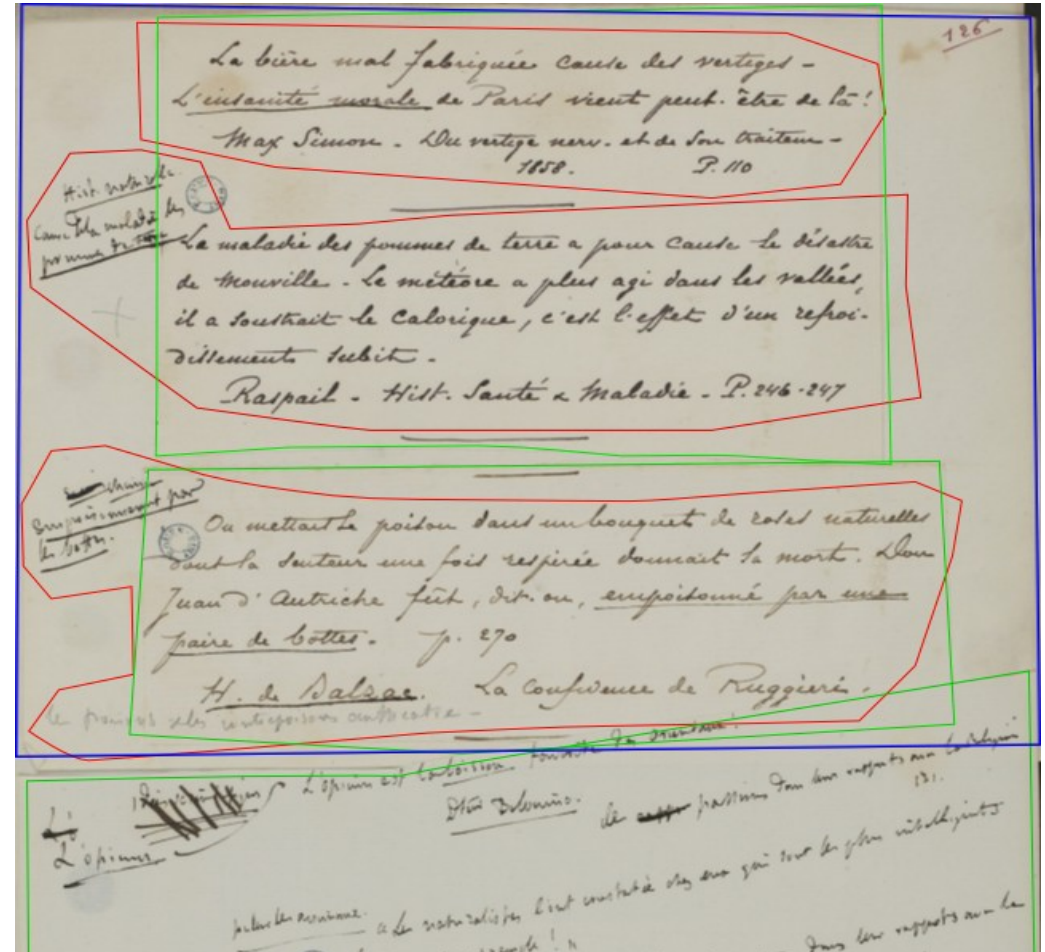 126
La bière mal fabriquée cause des vertiges -
L'insanité morale de Paris vient peut-être de là!
Max Simon - Du vertige nerv. et de son traitem -
1858. P. 110
Hist. naturelle.
cause de la maladie des
pommes de terre
La maladie des pommes de terre a pour cause le désastre
de Monville - Le météore a plus agi dans les vallées,
il a soustrait le calorique, c'est l'effet d'un refroi-
dissement subit -
Raspail - Hist. Santé & Maladie - P. 246-247
empoisonnement par
les bottes.
On mettait le poison dans un bouquet de roses naturelles
dont la senteur une fois respirée donnait la mort. Don
Juan d'Autriche fût, dit-on, empoisonné par une
paire de bottes. p. 270
H. de Balzac. La Confidence de Ruggieri.
L'opium est la boisson favorite des
de passions dans leurs rapports avec la Religion
131.
L'opium
les naturalistes l'ont constatée chez ceux qui sont les plus intelligents
dans leurs rapports avec la